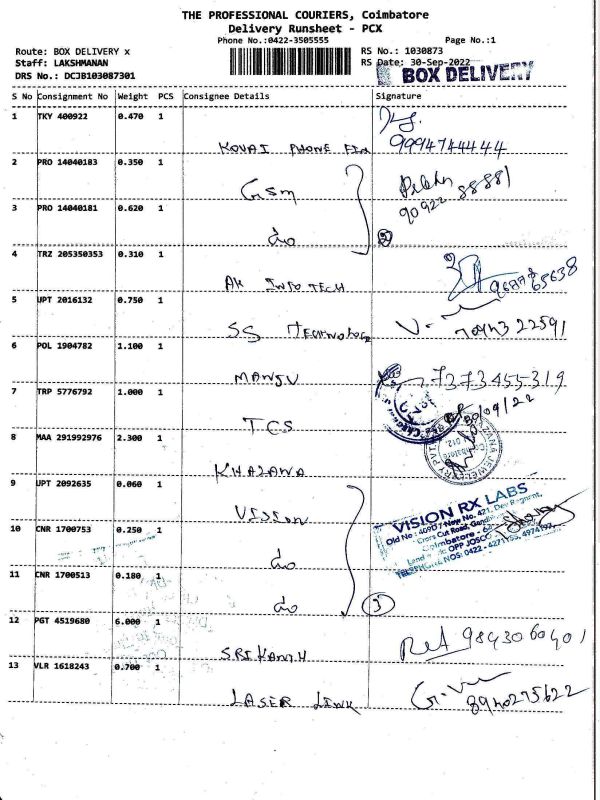 THE PROFESSIONAL COURIERS, Coimbatore
Delivery Runsheet - PCX
Phone No.:0422-3505555 Page No.:1
Route: BOX DELIVERY x RS No.: 1030873
Staff: LAKSHMANAN RS Date: 30-Sep-2022
DRS No.: DCJB103087301 BOX DELIVERY
S No Consignment No Weight PCS Consignee Details Signature
1 TKY 400922 0.470 1
KOVAI PHONE 9994744444
2 PRO 14040183 0.350 1
GSM 90922 88881
3 PRO 14040181 0.620 1
do 2
4 TRZ 205350353 0.310 1
AK INFO TECH
5 UPT 2016132 0.750 1
SS TECHNOLOGY 22591
6 POL 1904782 1.100 1
MANJU 7373455319
7 TRP 5776792 1.000 1
TCS 30/09/22
8 MAA 291992976 2.300 1
KHAZANA
9 UPT 2092635 0.060 1
VISION
VISION RX LABS
10 CNR 1700753 0.250 1
Old No : 409D / New No. 421,
Cross Cut Road,
Coimbatore -
OPP JOSCO
TELEPHONE NOS: 0422 -
do
11 CNR 1700513 0.180 1
do 3
12 PGT 4519680 6.000 1
SRIKANTH 9843060401
13 VLR 1618243 0.700 1
LASER LINK 8940275622